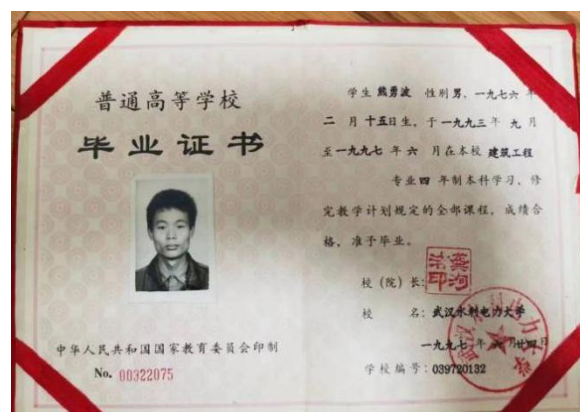 普通高等学校
毕业证书
中华人民共和国国家教育委员会印制
No. 00322075
学生 熊勇波 性别 男，一九七六 年
二 月 十五日生，于一九九三年 九 月
至一九九七 年 六 月在本校 建筑工程
专业四 年制本科学习，修
完教学计划规定的全部课程，成绩合
格，准予毕业。
校（院）长：
校 名：武汉水利电力大学
一九九七 年 六 月廿四日
学校编号：039720132